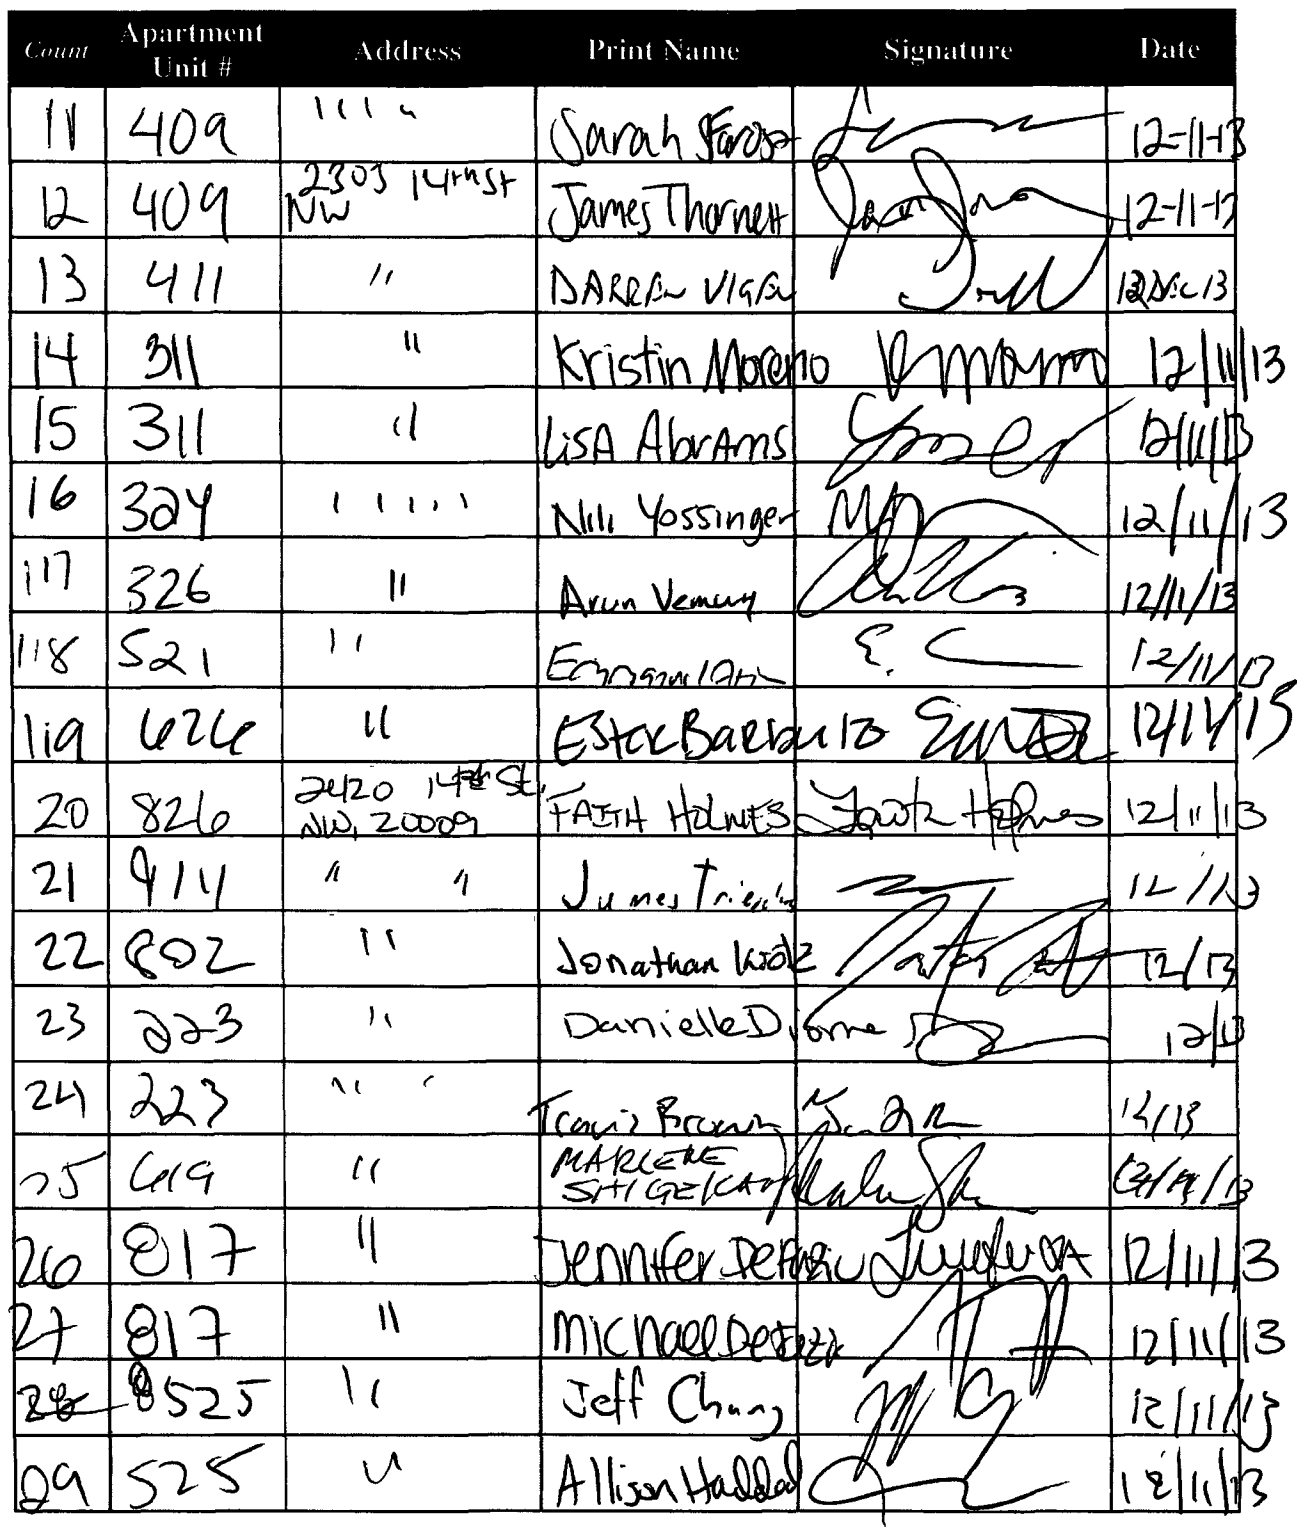 Count Apartment Unit # Address Print Name Signature Date
11 409 " " Sarah 12-11-13
12 409 2303 14th St NW James Thornett 12-11-13
13 411 " DARREN VIGEN 12 DEC 13
14 311 " Kristin Moreno 12/11/13
15 311 " LISA AbrAms 12/11/13
16 324 " " Nili Yossinger 12/11/13
17 326 " Arun Vemury 12/11/13
18 521 " E. C 12/11/13
19 626 " Ester Barbu 12/11/13
20 826 2420 14th St. NW, 20009 FAITH HOLMES Faith Holmes 12/11/13
21 914 " " James 12/13
22 802 " Jonathan 12/13
23 223 " Danielle 12/13
24 223 " Travis Brown 12/13
25 619 " MARLENE SHIGEKAWA 13
26 817 " Jennifer DeFazio 12/11/13
27 817 " Michael DeFazio 12/11/13
28 525 " Jeff Chung 12/11/13
29 525 " Allison Haddad 12/11/13